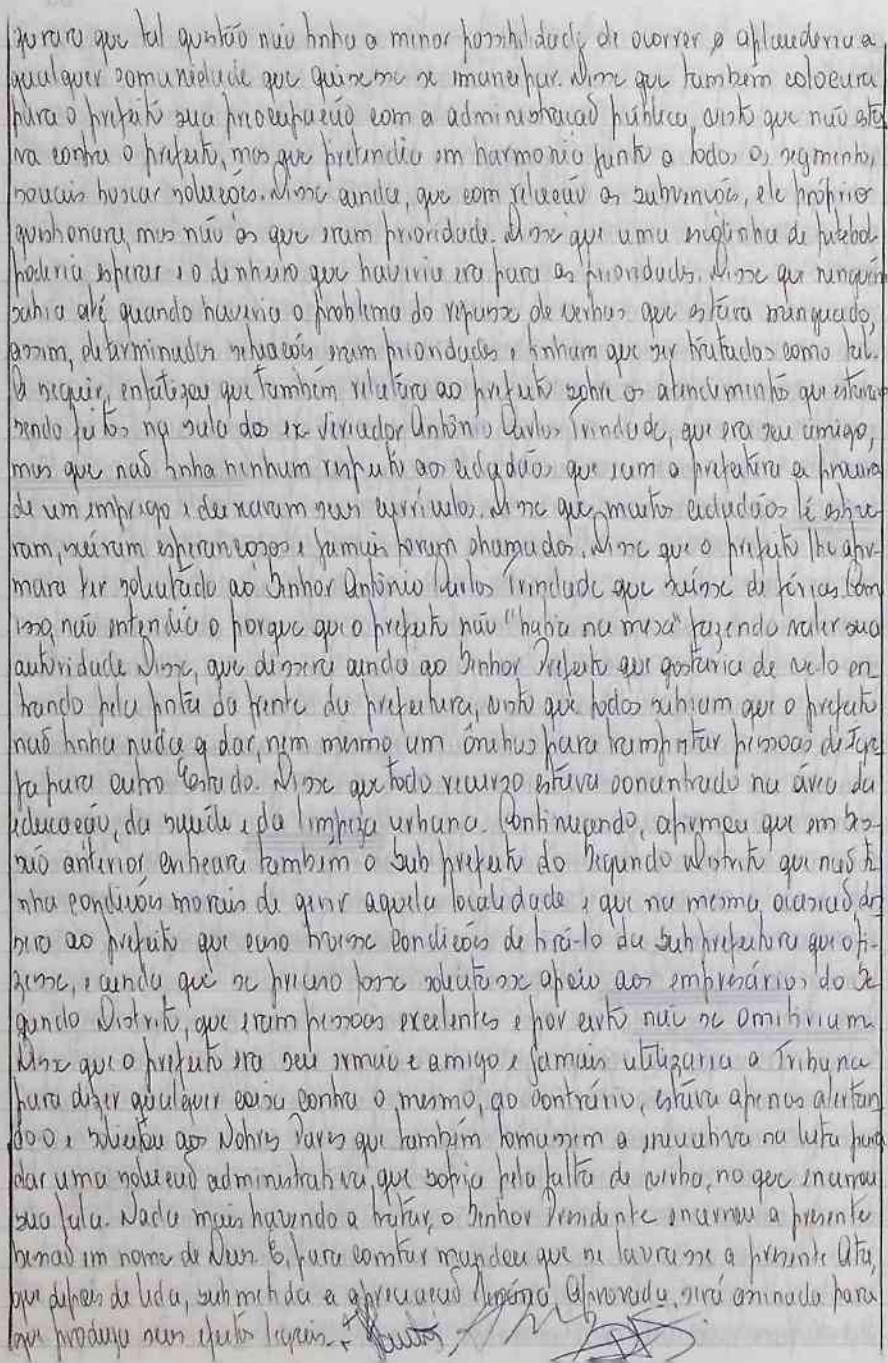 gurara que tal questão não tinha a menor possibilidade de ocorrer e aplauderia a
qualquer comunidade que quisesse se imancipar. Disse que também colocara
para o prefeito sua preocupação com a administração pública, visto que não esta
va contra o prefeito, mas que pretendia em harmonia junto a todos os segmentos
sociais buscar soluções. Disse ainda, que com relação as subvenções, ele próprio
questionara, mas não as que eram prioridade. Disse que uma escolinha de futebol
poderia esperar e o dinheiro que haveria era para as prioridades. Disse que ninguém
sabia até quando haveria o problema do repasse de verbas que estava minguado,
assim, determinadas situações eram prioridades e tinham que ser tratadas como tal.
A seguir, enfatizou que também relatara ao prefeito sobre os atendimentos que estavam
sendo feitos na sala dos ex-Vereador Antônio Carlos Trindade, que era seu amigo,
mas que não tinha nenhum respeito aos cidadãos que iam a prefeitura a procura
de um emprego e deixavam seus currículos. Disse que muitos cidadãos lá estive
ram, saíram esperançosos e jamais foram chamados. Disse que o prefeito lhe afir-
mara ter solicitado ao Senhor Antônio Carlos Trindade que saísse de férias. Com
isso, não entendia o porque que o prefeito não "batia na mesa" fazendo valer sua
autoridade. Disse, que dissera ainda ao Senhor Prefeito que gostaria de velo en
trando pela porta da frente da prefeitura, visto que todos sabiam que o prefeito
não tinha nada a dar, nem mesmo um ônibus para transportar pessoas
para outro Estado. Disse que todo recurso estava concentrado na área da
educação, da saúde e da limpeza urbana. Continuando, afirmou que em Ses-
são anterior, criticara também o Sub prefeito do Segundo Distrito que não ti
nha condições morais de gerir aquela localidade e que na mesma ocasião dis
sera ao prefeito que caso tivesse condições de tirá-lo da Sub prefeitura que o fi-
zesse, e ainda que se preciso fosse solicitasse apoio aos empresários do Se
gundo Distrito, que eram pessoas excelentes e por certo não se omitiriam.
Disse que o prefeito era seu irmão e amigo e jamais utilizaria a Tribuna
para dizer qualquer coisa contra o mesmo, ao contrário, estava apenas alertan
do-o e solicitou aos Nobres Pares que também tomassem a iniciativa na luta para
dar uma solução administrativa, que sofria pela falta de verba, no que encerrou
sua fala. Nada mais havendo a tratar, o Senhor Presidente encerrou a presente
Sessão em nome de Deus. E, para constar mandou que se lavrasse a presente Ata,
que depois de lida, submetida a apreciação Plenária, aprovada, será assinada para
que produza seus efeitos legais.